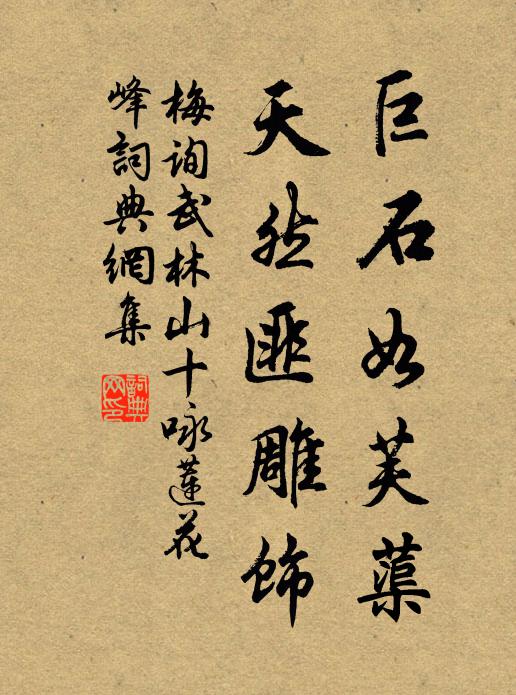 巨石如芙蕖
天然匪雕飾
梅詢武林山十咏蓮花
峰詞典網集
詞典網印